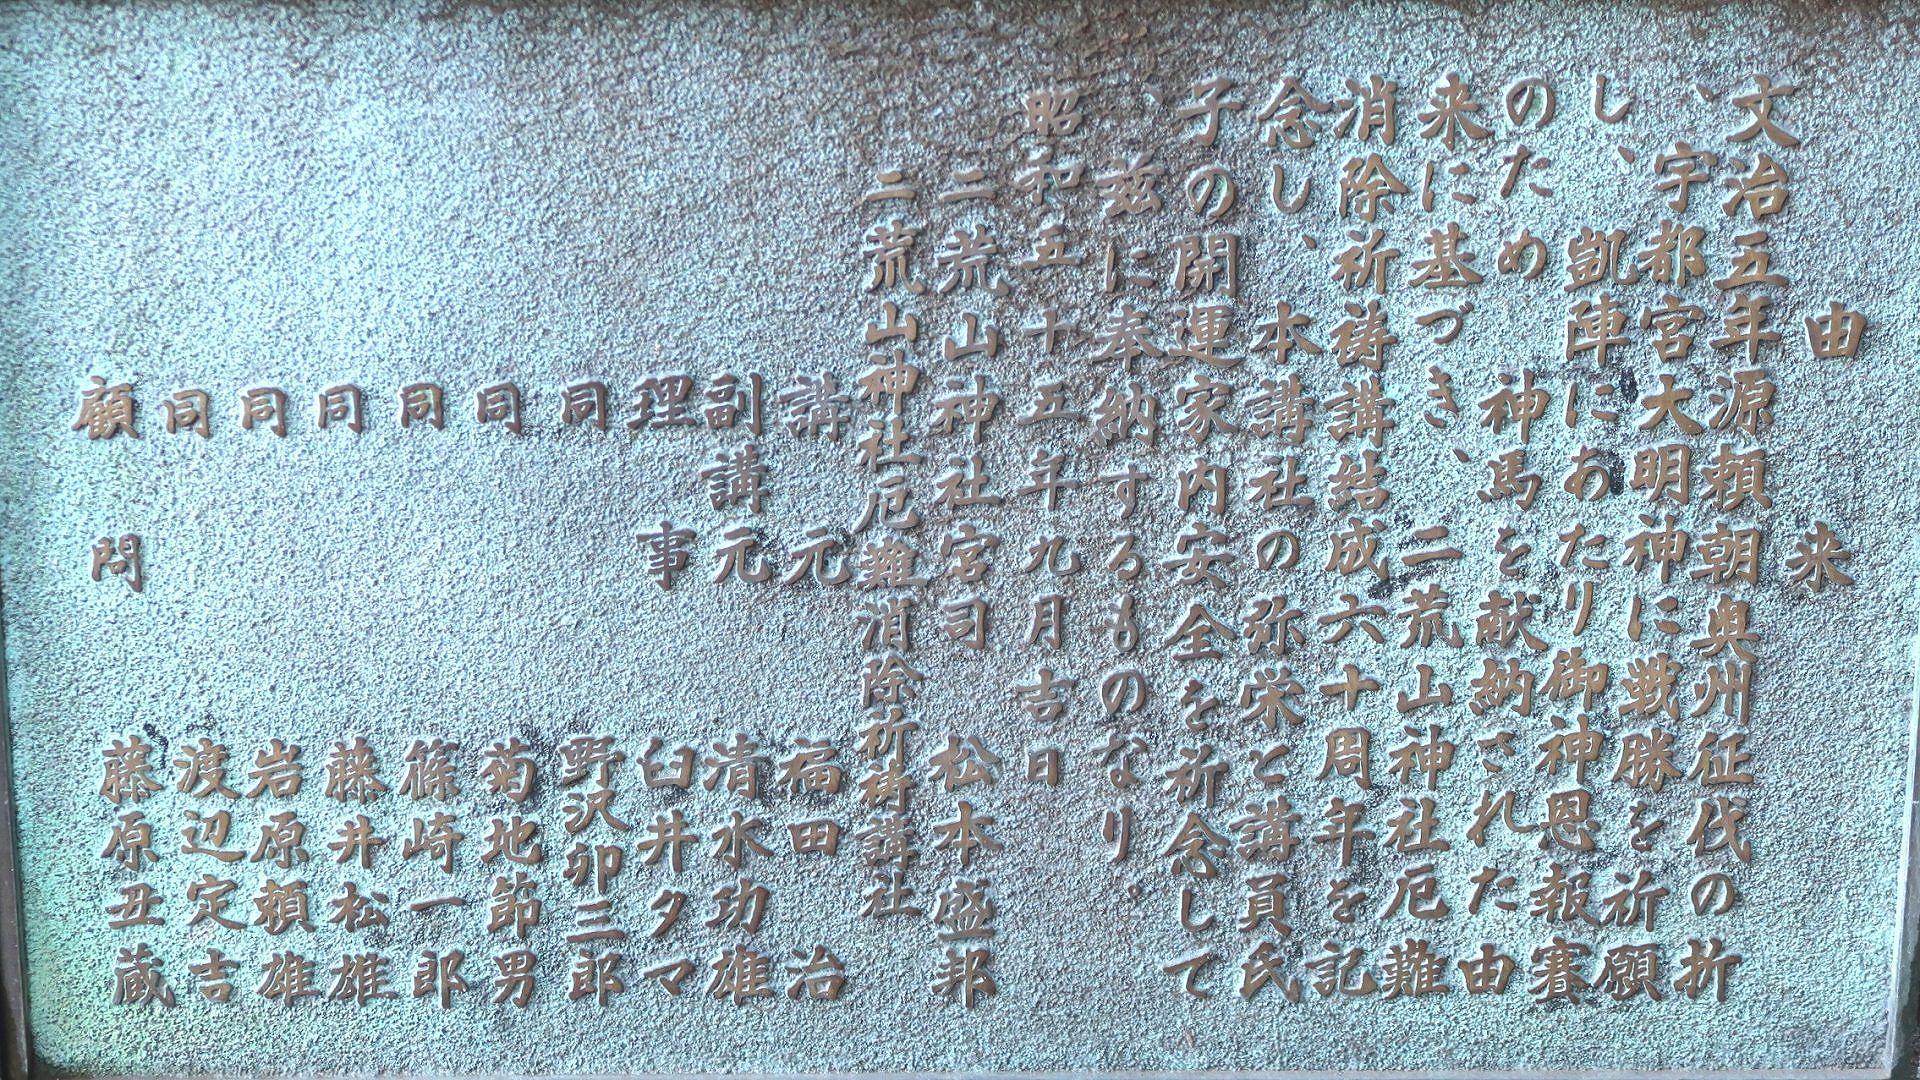 由来
文治五年源頼朝奥州征伐の折
、宇都宮大明神に戦勝を祈願
し、凱陣にあたり御神恩報賽
のため神馬を献納された由
来に基づき、二荒山神社厄難
消除祈祷講結成六十周年を記
念し、本講社の弥栄と講員氏
子の開運家内安全を祈念して
、茲に奉納するものなり。
昭和五十五年九月吉日
二荒山神社宮司 松本盛邦
二荒山神社厄難消除祈祷講社
講元 福田治
副講元 清水功雄
理事 臼井タマ
同 野沢卯三郎
同 菊地節男
同 篠崎一郎
同 藤井松雄
同 岩原頼雄
同 渡辺定吉
顧問 藤原丑蔵